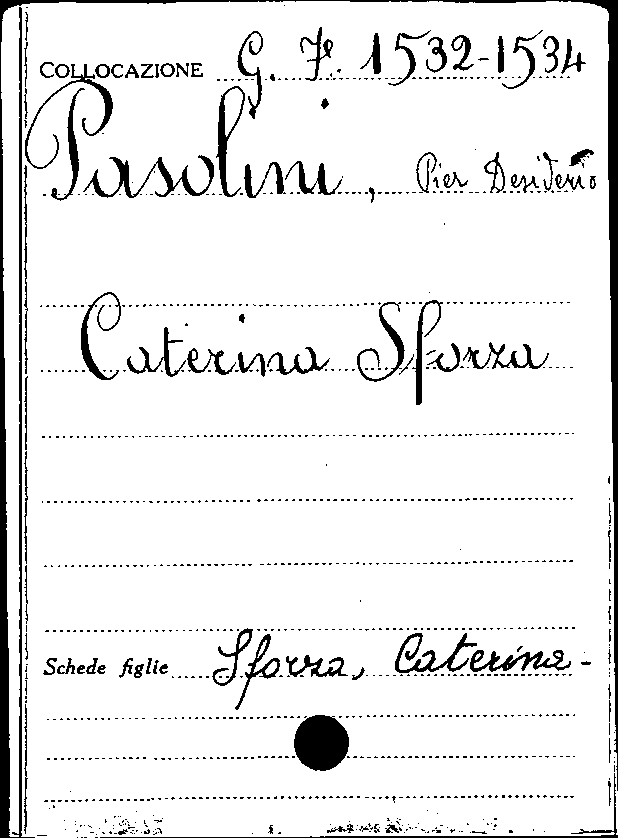 COLLOCAZIONE G. F. 1532-1534
Pasolini, Pier Desiderio
Caterina Sforza
Schede figlie Sforza, Caterina-